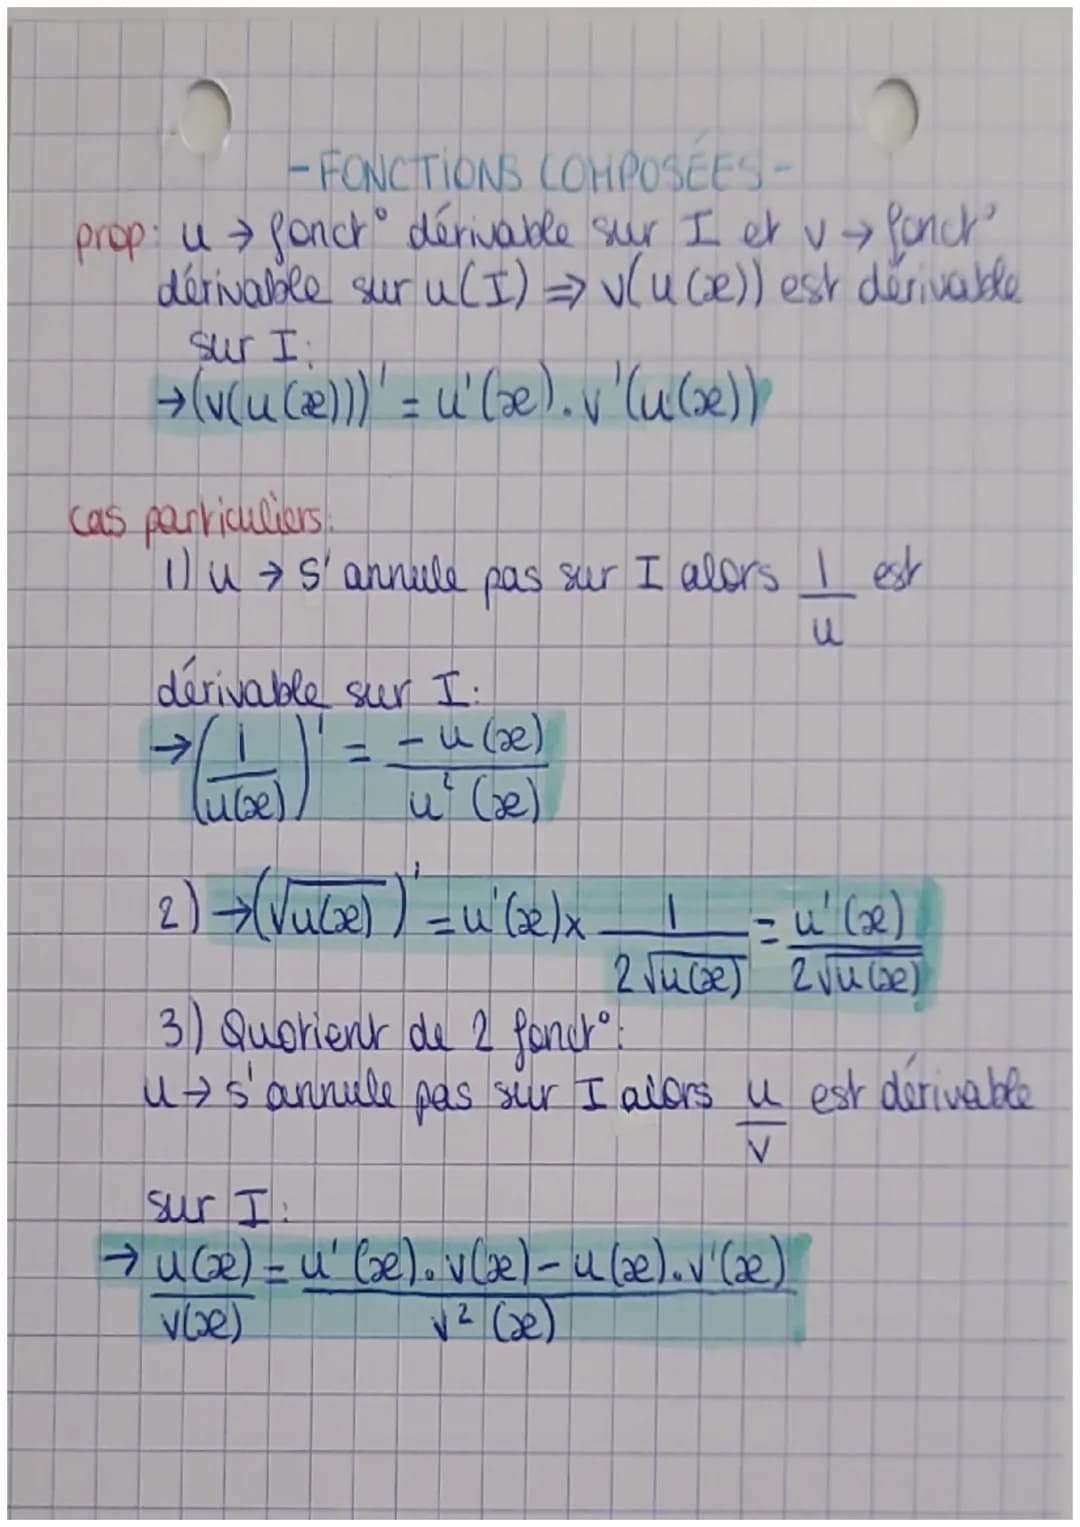 - FONCTIONS COMPOSÉES -
prop: u → fonct° dérivable sur I et v → fonct°
dérivable sur u(I) ⇒ v(u(x)) est dérivable
sur I:
→ (v(u(x)))' = u'(x). v'(u(x))
cas particuliers:
1) u → s'annule pas sur I alors 1/u est
dérivable sur I:
→ (1/u(x))' = -u(x)/u²(x)
2) → (√u(x))' = u'(x) x 1/2√u(x) = u'(x)/2√u(x)
3) Quotient de 2 fonct°:
u → s'annule pas sur I alors u/v est dérivable
sur I:
→ u(x)/v(x) = u'(x). v(x) - u(x). v'(x)/v²(x)